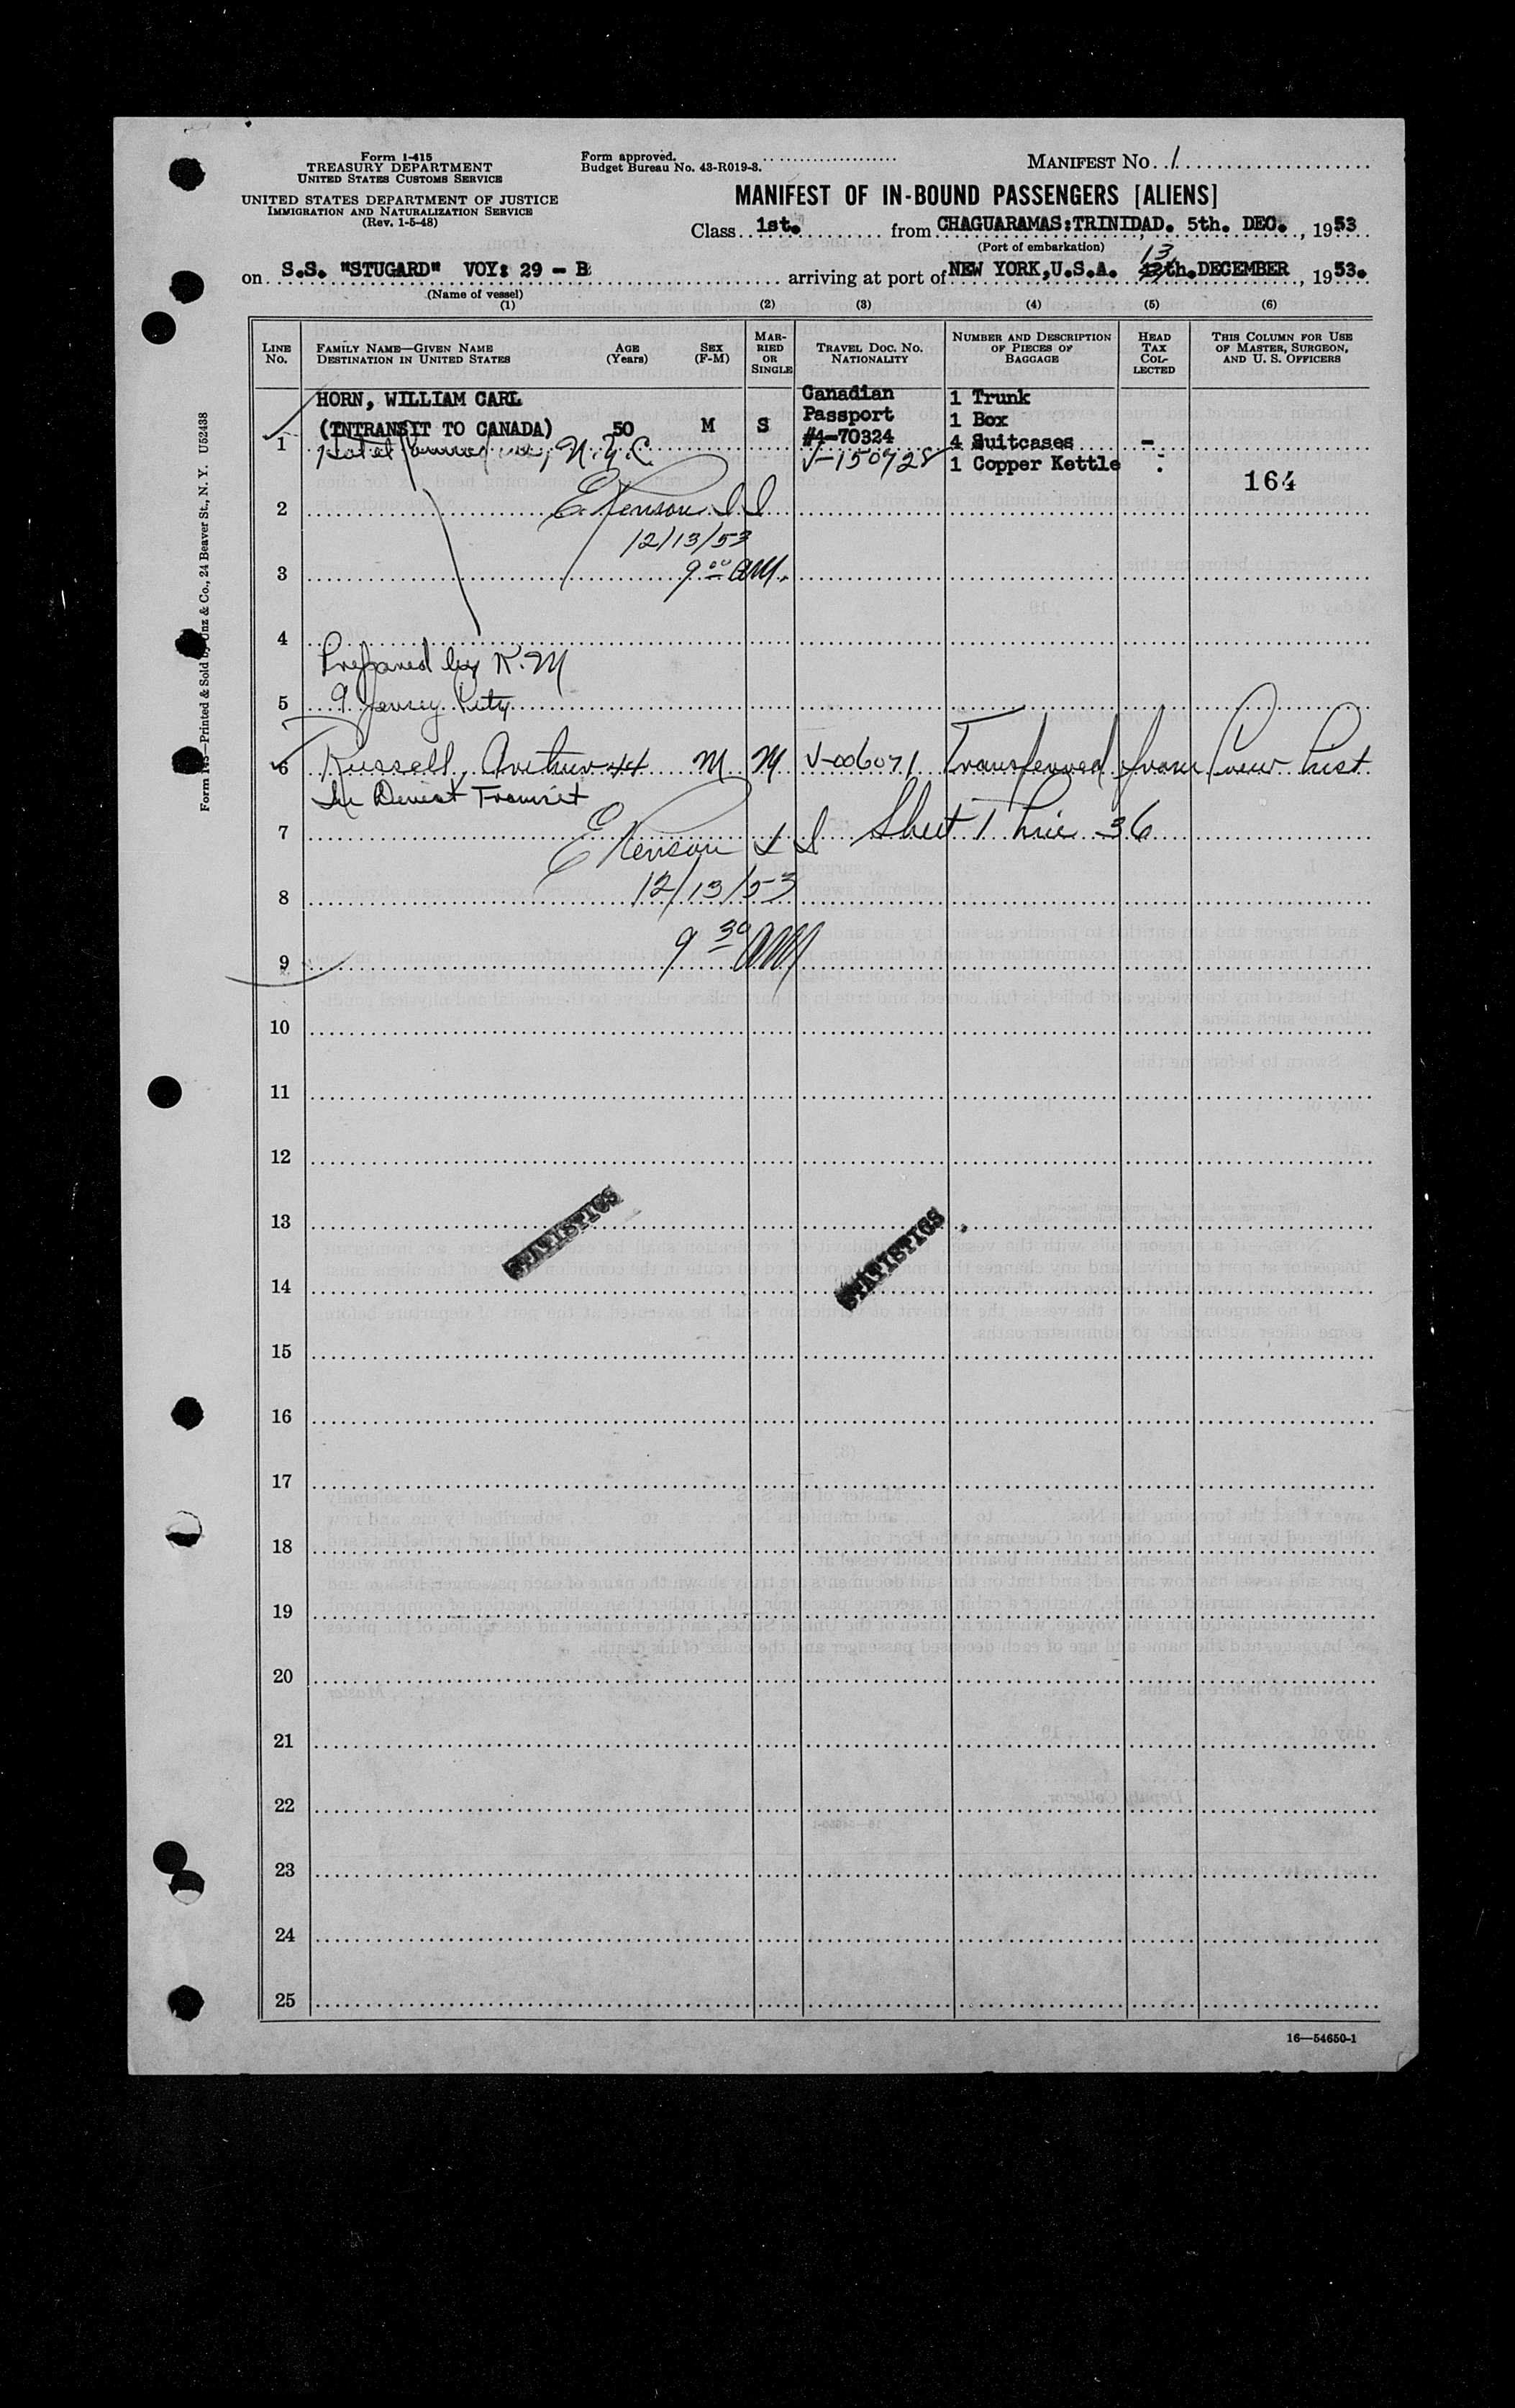 Form I-415
TREASURY DEPARTMENT
UNITED STATES CUSTOMS SERVICE
UNITED STATES DEPARTMENT OF JUSTICE
IMMIGRATION AND NATURALIZATION SERVICE
(Rev. 1-5-48)
Form approved.
Budget Bureau No. 43-R019-3.
MANIFEST NO. 1
MANIFEST OF IN-BOUND PASSENGERS [ALIENS]
Class 1st. from CHAGUARAMAS:TRINIDAD. 5th. DEC., 1953
(Port of embarkation)
13
on S.S. "STUGARD" VOY: 29 - B arriving at port of NEW YORK,U.S.A. th.DECEMBER, 1953.
(Name of vessel)
(1) (2) (3) (4) (5) (6)
LINE NO. FAMILY NAME—GIVEN NAME DESTINATION IN UNITED STATES AGE (Years) SEX (F-M) MARRIED OR SINGLE TRAVEL DOC. NO. NATIONALITY NUMBER AND DESCRIPTION OF PIECES OF BAGGAGE HEAD TAX COLLECTED THIS COLUMN FOR USE OF MASTER, SURGEON, AND U. S. OFFICERS
HORN, WILLIAM CARL Canadian 1 Trunk
(INTRANSIT TO CANADA) 50 M S Passport 1 Box
1 #4-70324 4 Suitcases -
Hotel N.Y.C. V-150728 1 Copper Kettle
164
2 E. Kenson I I
12/13/53
3 9 00 AM.
4
Prepared by K.M
5 9 Jersey City
6 Russell, Arthur 44 M M V-006071 Transferred from Crew List
In Direct Transit
7 E Kenson I I Sheet 1 Line 36
8 12/13/53
9 9 30 AM
10
11
12
13
STATISTICS STATISTICS
14
15
16
17
18
19
20
21
22
23
24
25
16—54650-1
Form I-415—Printed & Sold by Unz & Co., 24 Beaver St., N. Y. U52438